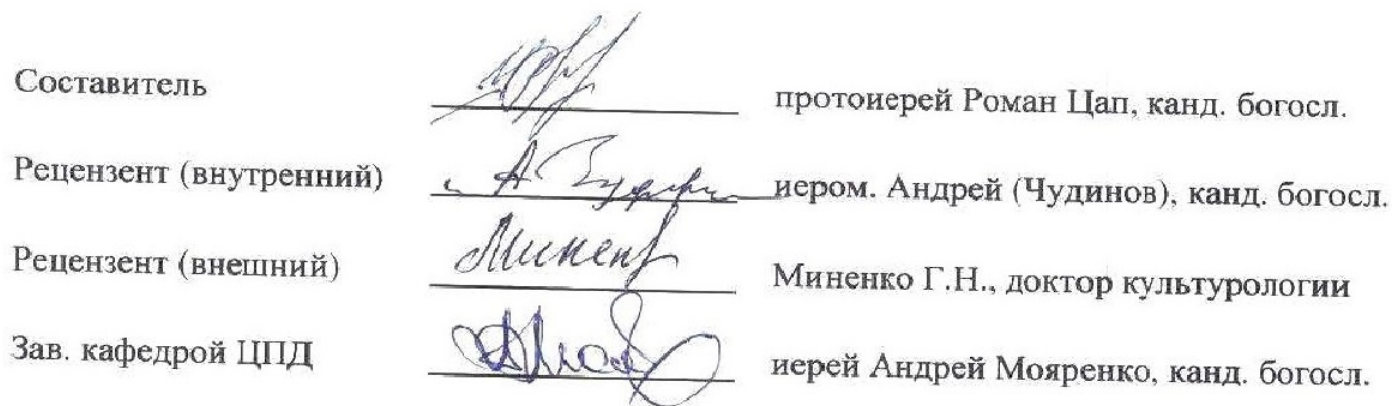 Составитель протоиерей Роман Цап, канд. богосл.
Рецензент (внутренний) иером. Андрей (Чудинов), канд. богосл.
Рецензент (внешний) Миненко Г.Н., доктор культурологии
Зав. кафедрой ЦПД иерей Андрей Мояренко, канд. богосл.